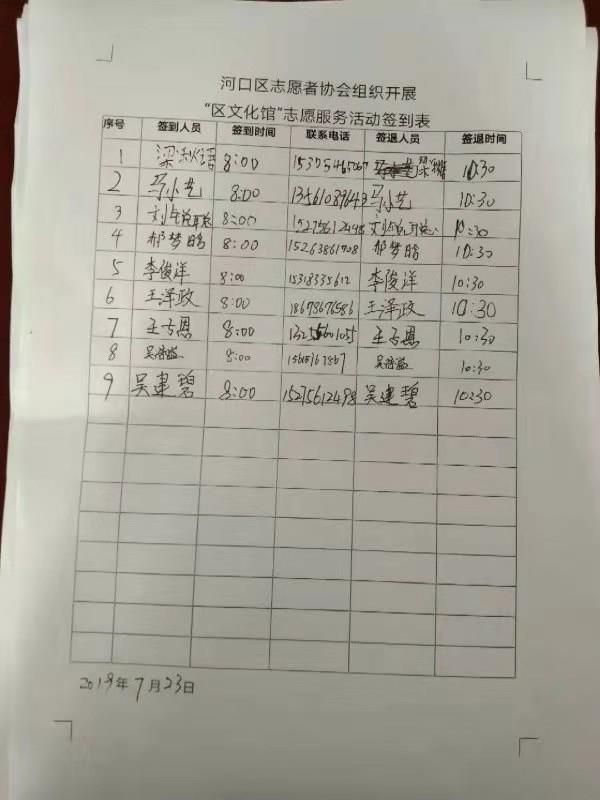 河口区志愿者协会组织开展
“区文化馆”志愿服务活动签到表
序号 签到人员 签到时间 联系电话 签退人员 签退时间
1 梁 8:00 10:30
2 马小艺 8:00 13561089643 马小艺 10:30
3 8:00 15275612498 10:30
4 郝梦晗 8:00 15263861708 郝梦晗 10:30
5 李俊洋 8:00 15318335612 李俊洋 10:30
6 王泽政 8:00 18678676586 王泽政 10:30
7 8:00 10:30
8 8:00 10:30
9 吴建碧 8:00 15275612498 吴建碧 10:30
2019年7月23日